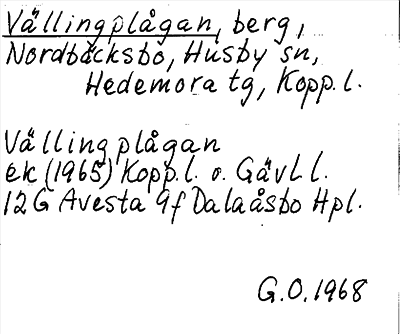 Vällingplågan, berg,
Nordbäcksbo, Husby sn,
Hedemora tg, Kopp. l.
Vällingplågan
ek (1965) Kopp. l. o. Gävl. l.
12G Avesta 9f Dalaåsbo Hpl.
G.O. 1968